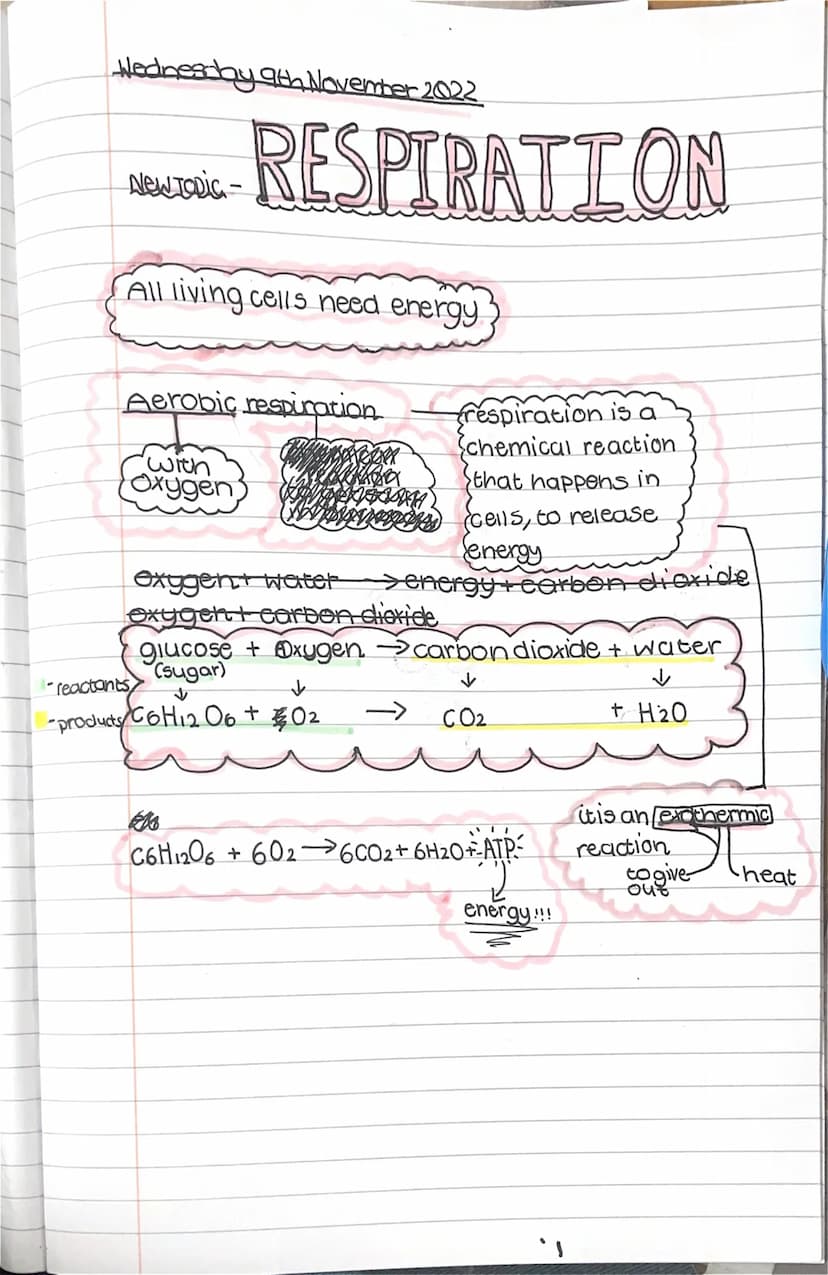 Wednesday 9th November 2022
NEW TOPIC - RESPIRATION
All living cells need energy
Aerobic respiration
with
oxygen
respiration is a
chemical reaction
that happens in
cells, to release
energy
oxygen + water → energy + carbon dioxide
oxygen + carbon dioxide
glucose + Oxygen → carbon dioxide + water
(sugar)
- reactants
- products
C6H12O6 + O2 → CO2 + H2O
it is an exothermic
reaction
to give
out
heat
C6H12O6 + 6O2 → 6CO2 + 6H2O + ATP
energy!!!